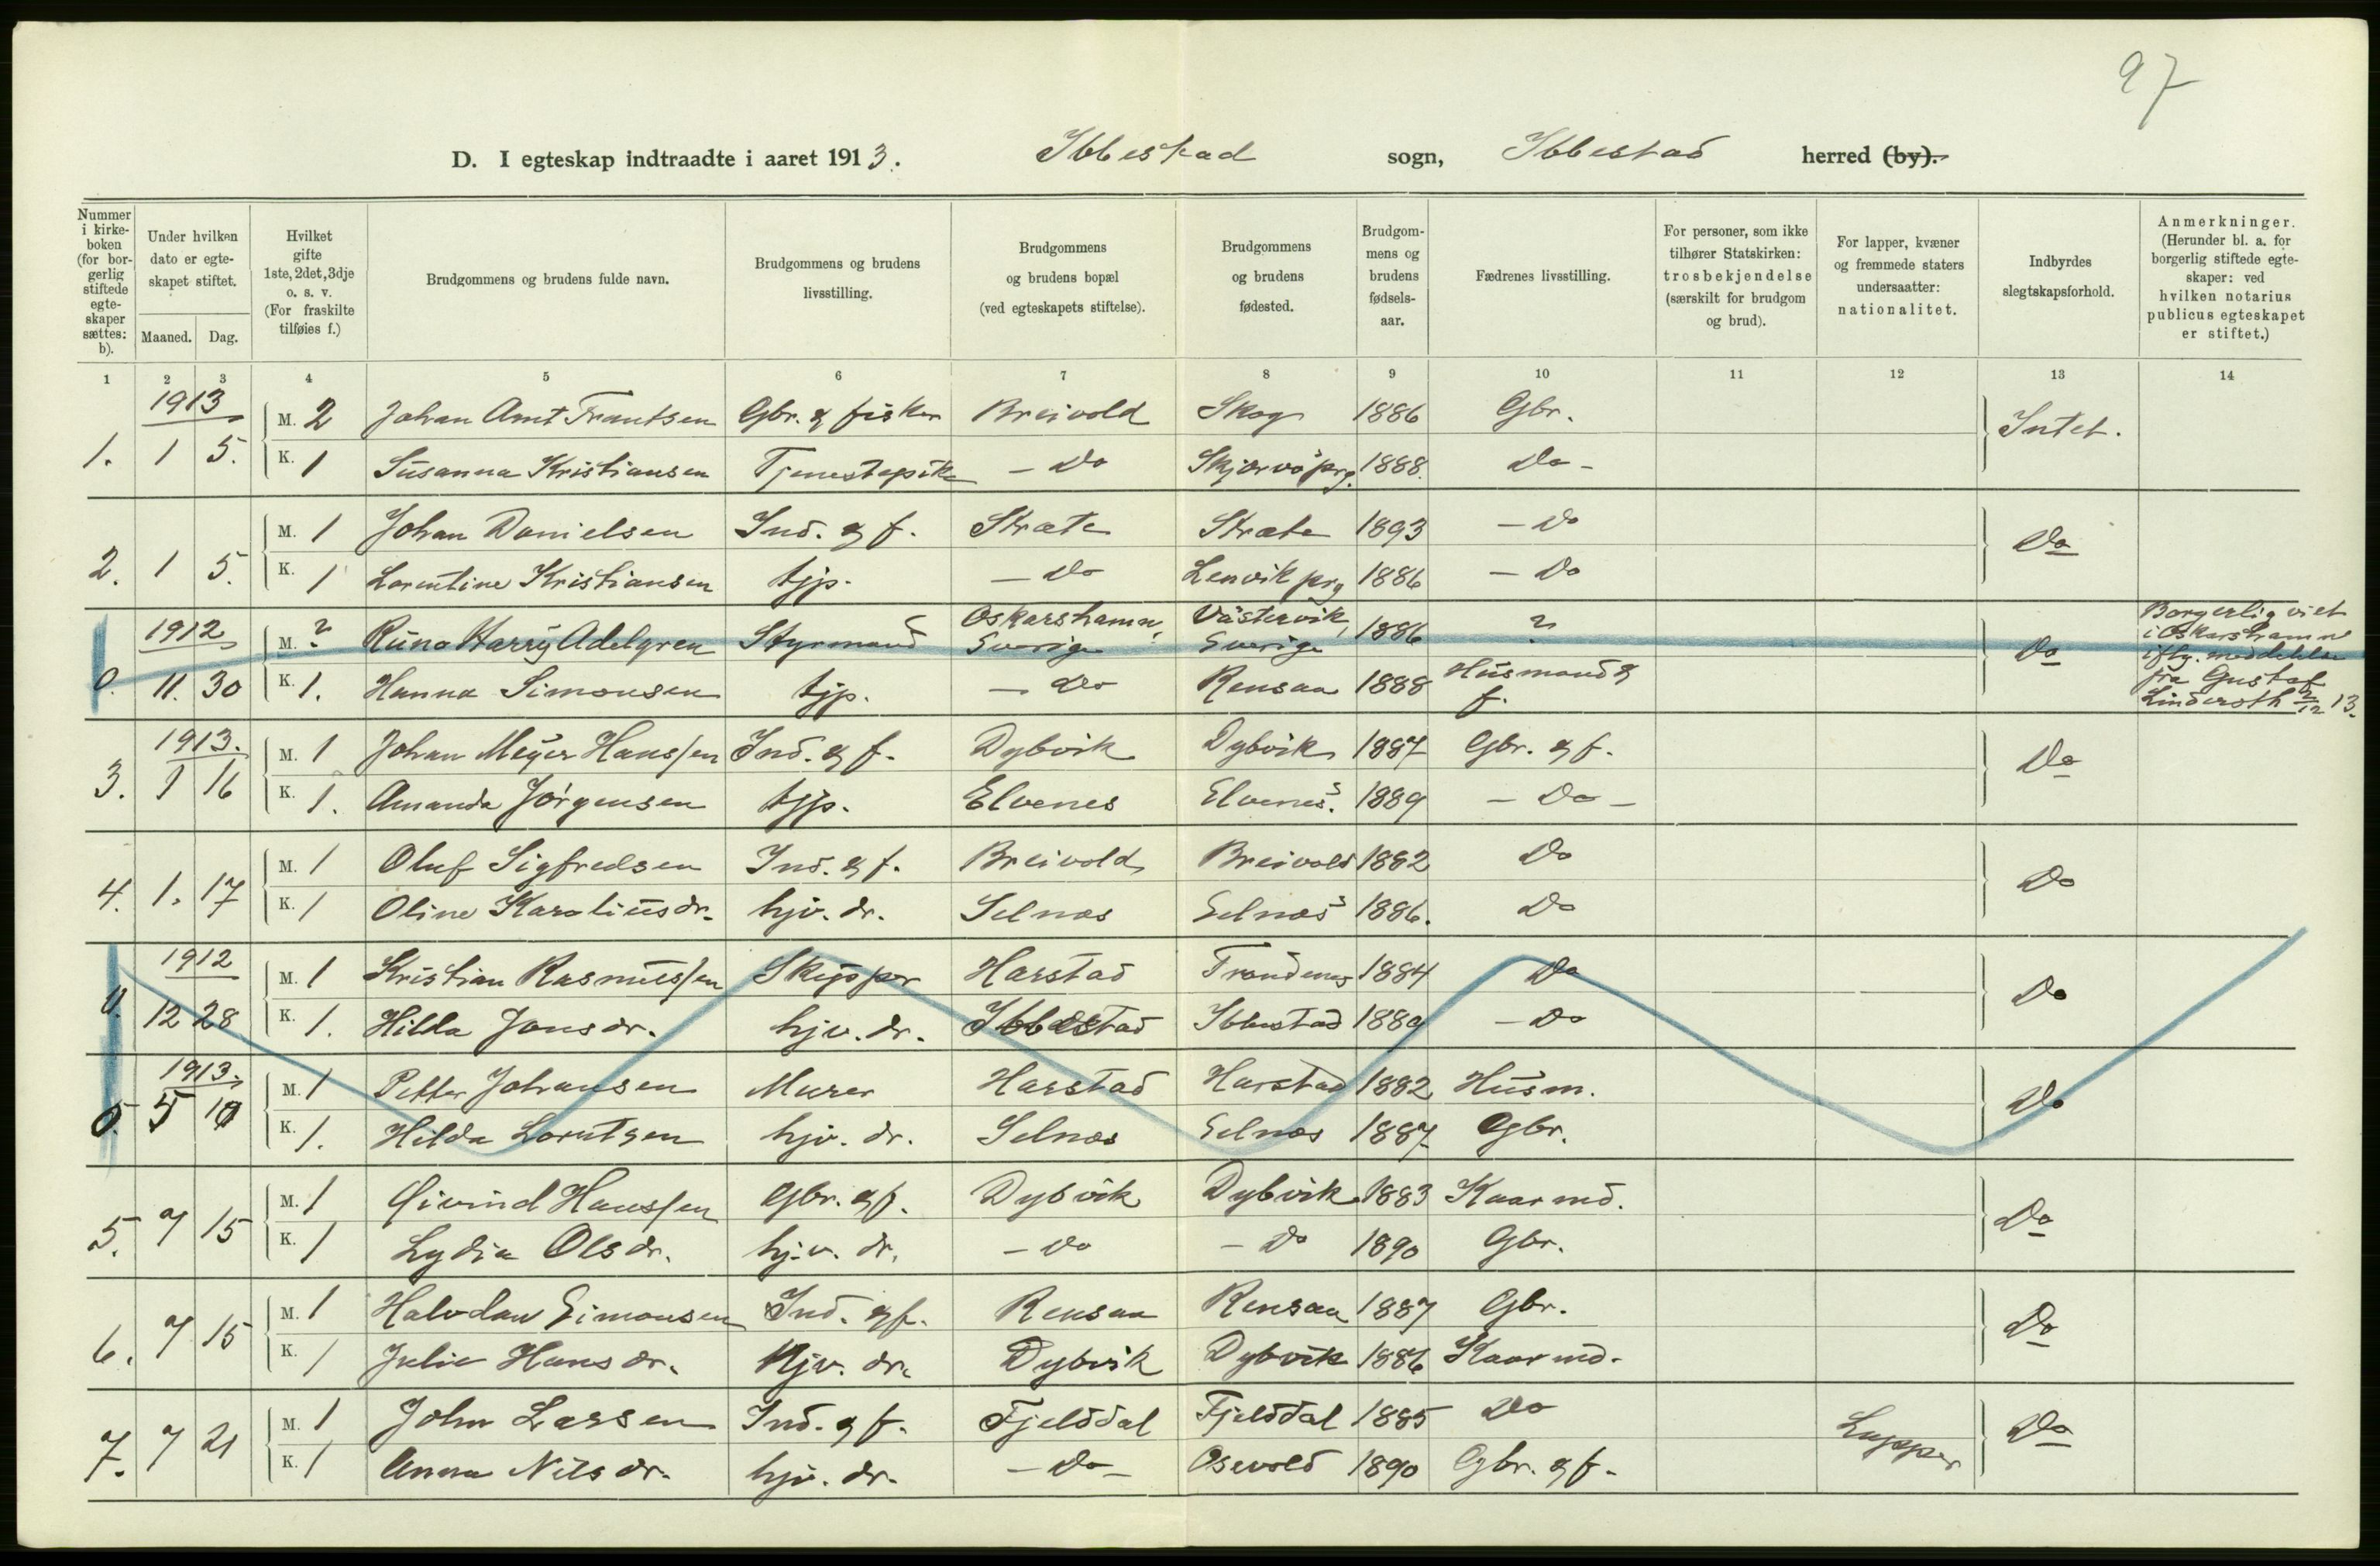 97
D. I egteskap indtraadte i aaret 1913. Ibbestad sogn, Ibbestad herred (by).
Nummer i kirke-boken (for bor-gerlig stiftede egte-skaper sættes: b).
Under hvilken dato er egte-skapet stiftet.
Maaned. Dag.
Hvilket gifte 1ste, 2det, 3dje o. s. v. (For fraskilte tilføies f.)
Brudgommens og brudens fulde navn.
Brudgommens og brudens livsstilling.
Brudgommens og brudens bopæl (ved egteskapets stiftelse).
Brudgommens og brudens fødested.
Brudgom-mens og brudens fødsels-aar.
Fædrenes livsstilling.
For personer, som ikke tilhører Statskirken: trosbekjendelse (særskilt for brudgom og brud).
For lapper, kvæner og fremmede staters undersaatter: nationalitet.
Indbyrdes slegtskapsforhold.
Anmerkninger. (Herunder bl. a. for borgerlig stiftede egte-skaper: ved hvilken notarius publicus egteskapet er stiftet.)
1 2 3 4 5 6 7 8 9 10 11 12 13 14
1913
M. 2 Johan Arnt Frantsen Gbr. & fisker Breivold Skog 1886 Gbr. Intet.
1. 1 5. K. 1 Susanna Kristiansen Tjenestepike - Do Skjærvö prg. 1888. Do -
M. 1 Johan Danielsen Ind. & f. Stræte Stræte 1893 - Do Do
2. 1 5. K. 1 Lorentine Kristiansen tjp. - Do Lenvik prg 1886 - Do
1912 M. ? Runo Harry Adelgren Styrmand Oskarshamn, Sverige Västervik, Sverige 1886 ? Do
0. 11. 30 K. 1. Hanna Simonsen tjp. - Do Rensaa 1888 Husmand & f.
Borgerlig viet
i Oskarshamn
iflg. meddelelse
fra Gustaf
Linderoth 2/12 13.
1913. M. 1 Johan Meyer Hanssen Ind. & f. Dybvik Dybvik 1887 Gbr. & f. Do
3. 1 16 K. 1. Amanda Jörgensen tjp. Elvenes Elvenes. 1889 - Do -
M. 1 Oluf Sigfredsen Ind. & f. Breivold Breivold 1882 Do Do
4. 1. 17 K. 1 Oline Karoliusdr. hjv. dr. Selnæs Selnæs 1886. Do
1912 M. 1 Kristian Rasmussen Skipper Harstad Trondenes 1884 Do Do
0. 12 28 K. 1. Hilda Jonsdr. hjv. dr. Ibbestad Ibbestad 1889 - Do
1913. M. 1 Petter Johansen Murer Harstad Harstad 1882 Husm. Do
0. 5 10 K. 1. Hilda Lorntsen hjv. dr. Selnæs Selnæs 1887 Gbr.
M. 1 Øivind Hanssen Gbr. & f. Dybvik Dybvik 1883 Kaarmd. Do
5. 7 15 K. 1 Lydia Olsdr. hjv. dr. - Do - Do 1890 Gbr.
M. 1 Halvdan Simonsen Ind. & f. Rensaa Rensaa 1887 Gbr. Do
6. 7 15 K. 1 Julie Hansdr. Hjv. dr. Dybvik Dybvik 1886 Kaarmd.
M. 1 John Larsen Ind. & f. Fjelddal Fjelddal 1885 Do Lapper Do
7. 7 21 K. 1 Anna Nilsdr. hjv. dr. - Do - Osevold 1890 Gbr. & f.